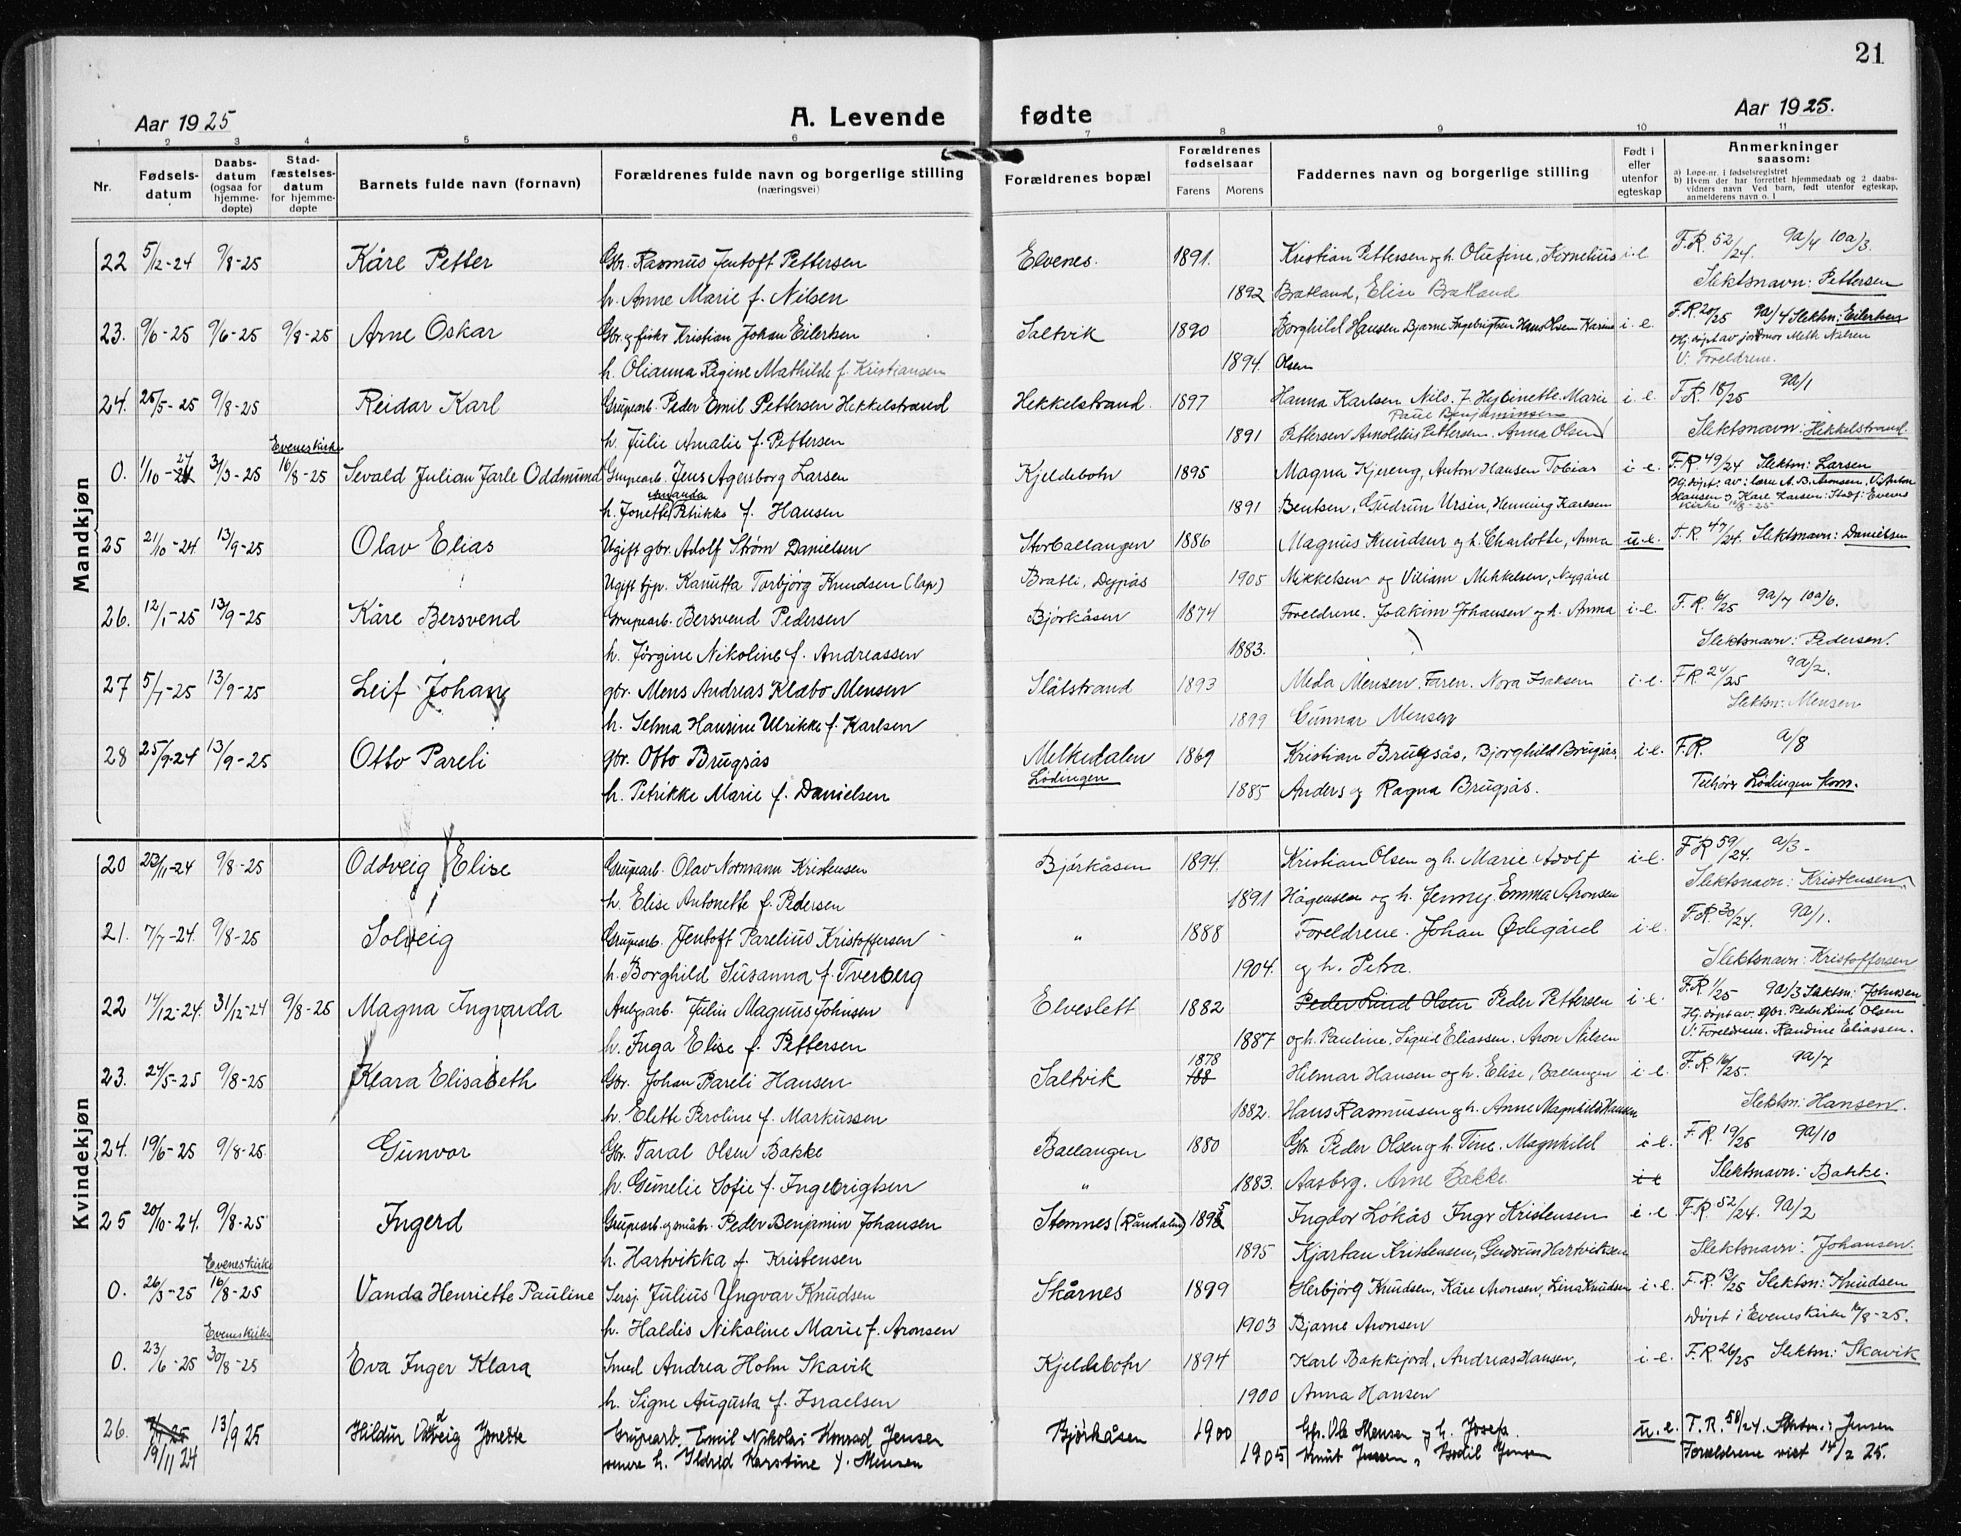 21
Aar 1925
A. Levende fødte
Aar 1925.
1 2 3 4 5 6 7 8 9 10 11
Nr.
Fødselsdatum
Daabsdatum (ogsaa for hjemmedøpte)
Stadfæstelsesdatum for hjemmedøpte
Barnets fulde navn (fornavn)
Forældrenes fulde navn og borgerlige stilling (næringsvei)
Forældrenes bopæl
Forældrenes fødselsaar
Farens Morens
Faddernes navn og borgerlige stilling
Født i eller utenfor egteskap
Anmerkninger saasom:
a) Løpe-nr. i fødselsregistret
b) Hvem der har forrettet hjemmedaab og 2 daabsvidners navn Ved barn, født utenfor egteskap, anmelderens navn o. l
Mandkjøn
22 5/12-24 9/8-25 Kåre Petter Gbr. Rasmus Jentoft Pettersen Elvenes. 1891. Kristian Pettersen og h. Olufine, Kornelius i-e F.R. 52/24. 9a/4 10a/3.
h. Anne Marie f. Nilsen 1892 Bratland, Elise Bratland Slektsnavn: Pettersen
23. 9/6-25 9/6-25 9/8-25 Arne Oskar Gbr. og fisker Kristian Johan Eilertsen Saltvik 1890 Borghild Hansen Bjarne Ingebrigtsen Hans Olsen Karin i-e. F.R. 20/25 9a/4 Slektsn: Eilertsen
Hj. døpt av jordmor Meth Nilsen
h. Olianna Regine Mathilde f. Kristiansen 1894. Olsen V: Foreldrene.
24. 25/5-25 9/8-25 Reidar Karl Grupearb. Peder Emil Pettersen Hekkelstrand Hekkelstrand. 1897 Hanna Karlsen Nils. J. Marie i-e. F.R. 18/25 9a/1
Paul Benjaminsen
h. Julie Amalie f. Pettersen 1891 Pettersen Arnoldus Pettersen. Anna Olsen Slektsnavn: Hekkelstrand.
Evenes kirke
0. 1/10-24 31/3-25 16/8-25 Sevald Julian Jarle Oddmund Grupearb. Jens Agersborg Larsen Kjeldebotn 1895 Magna Kjereng, Anton Hansen Tobias i-e F.R. 49/24 Slektsn: Larsen
Hj. døpt: av: lærer A. B. Aronsen, V: Anton
Amanda
h. Jonette Petrikke f. Hansen 1891 Bentsen, Gudrun Ursin, Henning Karlsen Hansen og Kare Larsen: Stadf: Evenes kirke 16/8-25
25 21/10-24 13/9-25 Olav Elias Ugift gbr. Adolf Strøm Danielsen Storballangen 1886 Magnus Knudsen og h. Charlotte, Anna u-e. F.R. 47/24. Slektsnavn: Danielsen
Ugift tjp. Kanutta Torbjørg Knudsen (lap) Bratli, Dypås 1905 Mikkelsen og Viliam Mikkelsen, Nygård
26. 12/1-25 13/9-25 Kåre Bersvend Grupearb. Bersvend Pedersen Bjørkåsen 1874 Foreldrene. Joakim Johansen og h. Anna i-e. F.R. 6/25 9a/7 10a/6.
h. Jørgine Nikoline f. Andreassen 1883. Slektsnavn: Pedersen.
27 5/7-25 13/9-25 Leif Johan gbr. Mens Andreas Klæbo Mensen Slåtstrand 1893 Meda Mensen. Faren. Nora Isaksen i-e. F.R 24/25 9a/2.
h. Selma Hansine Ulrikke f. Karlsen 1899 Gunnar Mensen Slektsn: Mensen
28 25/9-24 13/9-25 Otto Pareli gbr. Otto Brugsås Melkedalen 1869 Kristian Brugsås, Bjorghild Brugsås, i-e. F.R. a/8
Lødingen
h. Petrikke Marie f. Danielsen 1885 Anders og Ragna Brugsås. Tilhører Lødingen kom.
Kvindekjøn
20 23/11-24 9/8-25 Oddveig Elise Grupearb. Olav Normann Kristensen Bjørkåsen 1894. Kristian Olsen og h. Marie. Adolf i-e. F.R 59/24. a/3-
h. Elise Antonette f. Pedersen 1891 Hågensen og h. Jenny. Emma Aronsen Slektsnavn: Kristensen
21. 7/7-24. 9/8-25 Solveig Grupearb. Jentoft Parelius Kristoffersen " 1888 Foreldrene. Johan Ødegård i-e. F.R. 30/24. 9a/1.
h. Borghild Susanna f. Tverberg 1904. og h. Petra. Slektsnavn: Kristoffersen
22 14/12-24. 31/12-24 9/8-25 Magna Ingvarda Anlgarb. Julin Magnus Johnsen Elveslett 1882 Peder Lind Olsen Peder Pettersen i-e. F.R 1/25 9a/3 Slektsn: Johnsen
Hj. døpt av: gbr. Peder Lind Olsen
h. Inga Elise f. Pettersen 1887 og h. Pauline. Sigrid Eliassen. Aron Nilsen V: Foreldrene. Randine Eliassen.
23. 24/5-25 9/8-25 Klara Elisabeth Gbr. Johan Pareli Hansen Saltvik 1878 188 Hilmar Hansen og h. Elise, Ballangen i-e. F.R. 16/25. 9a/7
h. Elette Peroline f. Markussen 1882. Hans Rasmussen og h. Anne Magnhild Hansen Slektsn: Hansen.
24. 19/6-25 9/8-25 Gunvor Gbr. Taral Olsen Bakke Ballangen 1880 Gbr. Peder Olsen og h. Tine. Magnhild i-e. F.R. 19/25 9a/10
h. Gunelie Sofie f. Ingebrigtsen " 1883. Aasberg. Arne Bakke i-e Slektsnavn: Bakke.
25 20/10-24. 9/8-25 Ingerd Grupearb. og småbr. Peder Benjamin Johansen Stemnes (Råndalen) 1895 Ingdor Løkås Ingv Kristensen i-e F.R. 52/24. 9a/2
h. Hartvikka f. Kristensen 1895 Kjartan Kristensen, Gudrun Hartviksen Slektsnavn: Johansen.
Evenes kirke
0. 26/3-25 16/8-25 Vanda Henriette Pauline Sersj. Julius Yngvar Knudsen Skårnes 1899 Herbjørg Knudsen, Kåre Aronsen, Lina Knudsen i-e. F.R. 13/25 Slektsn: Knudsen
h. Haldis Nikoline Marie f. Aronsen 1903 Bjarne Aronsen Døpt i Evenes Kirke 16/8-25.
Evenes kirke
0. 23/6-25 30/8-25 Eva Inger Klara Smed Andrea Holm Skavik Kjeldebotn 1894 Karl Bakkejord, Andreas Hansen, i-e. F.R. 26/25 Slektsn: Skavik
h. Signe Augusta f. Israelsen 1900 Anna Hansen
26. 19/11 24 13/9 25 Hildur Oddveig Jonette Grupearb. Emil Nikolai Konrad Jensen Bjørkåsen 1900 Gbr. Ole Mensen og h. Josefa. u.e. F.R. 58/24. Slektsn.: Jensen
senere h. Ildrid Karstine f. Mensen 1905 Knut Jensen, Bodil Jensen Forældrene viet 14/2 25.